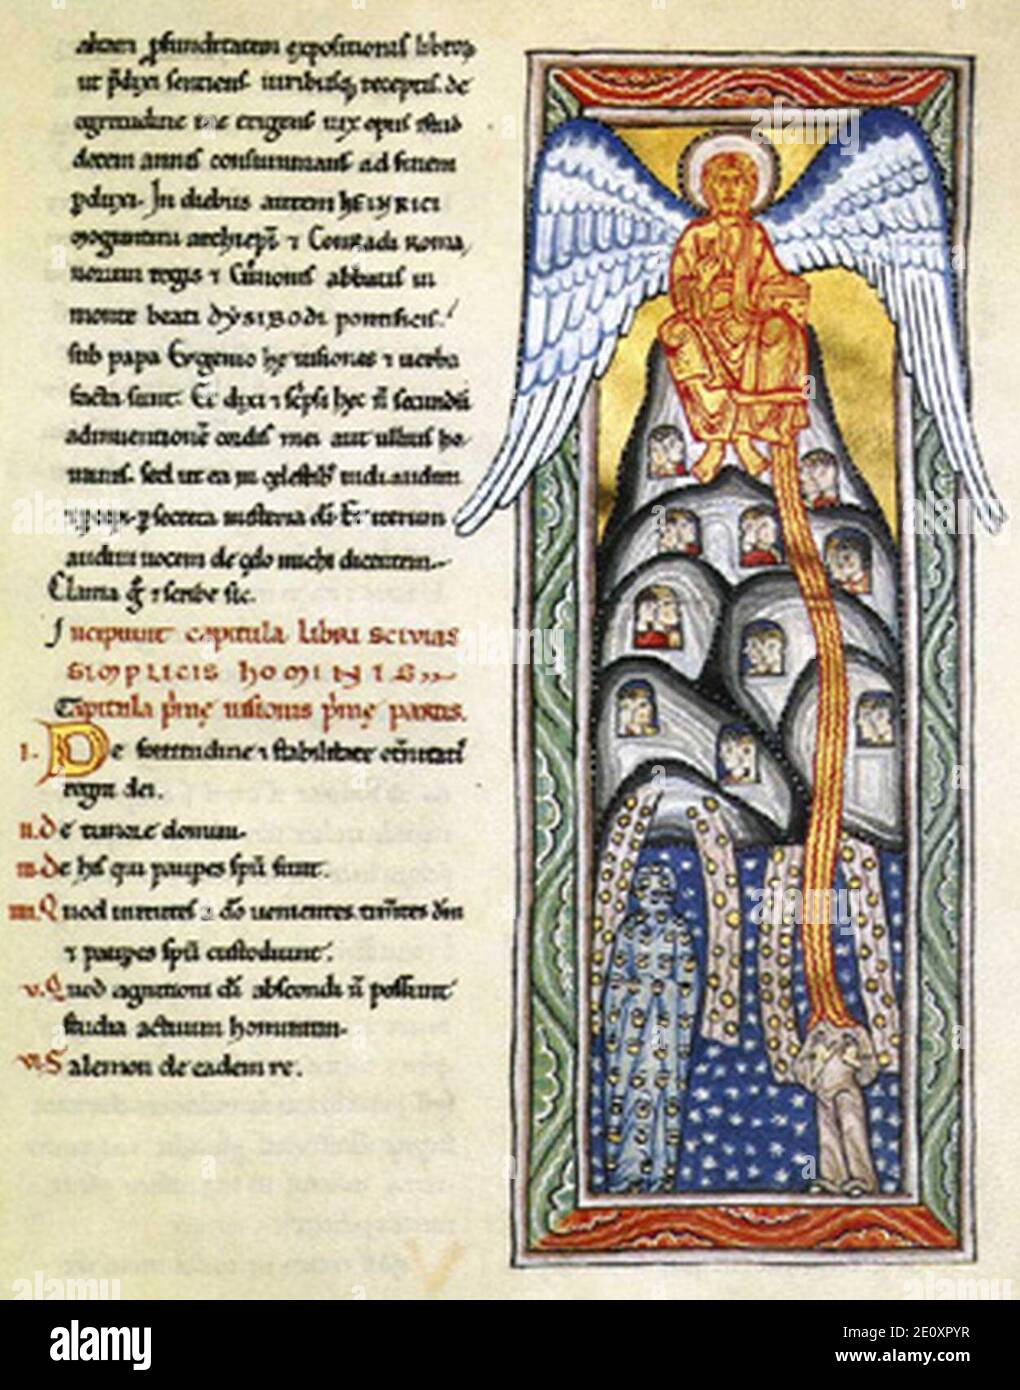 altam profunditatem expositionis libror
ut p̄dixi sentiens. viribusq; receptis de
egritudine me erigens vix opus istud
decem annis consummans ad finem
pduxi. In diebus autem heinrici
moguntini archiep̄i & Conradi roma
norum regis & Cunonis abbatis in
monte beati dysibodi pontificis.
sub papa Eugenio he visiones & verba
facta sunt. Et dixi & scripsi hec n̄ secundū
adinventionē cordis mei aut ullius ho
minis. sed ut ea in celestib; vidi. audivi
& pcepi p secreta misteria dī. Et iterum
audivi vocem de celo michi dicentem.
Clama g & scribe sic.
Incipiunt capitula libri scivias
simplicis hominis
Capitula p̄me visionis p̄me partis.
I. De fortitudine & stabilitate et̄nitatis
regni dei.
II. De timore domini.
III. De his qui paupes spū sunt.
IIII. Quod virtutes a dō venientes tim̄tes dm̄
& paupes spū custodiunt.
V. Quod agnitioni dī abscondi n̄ possunt
studia actuum hominum.
VI. Salemon de eadem re.
alamy
alamy
Image ID: 2E0XPYR
www.alamy.com